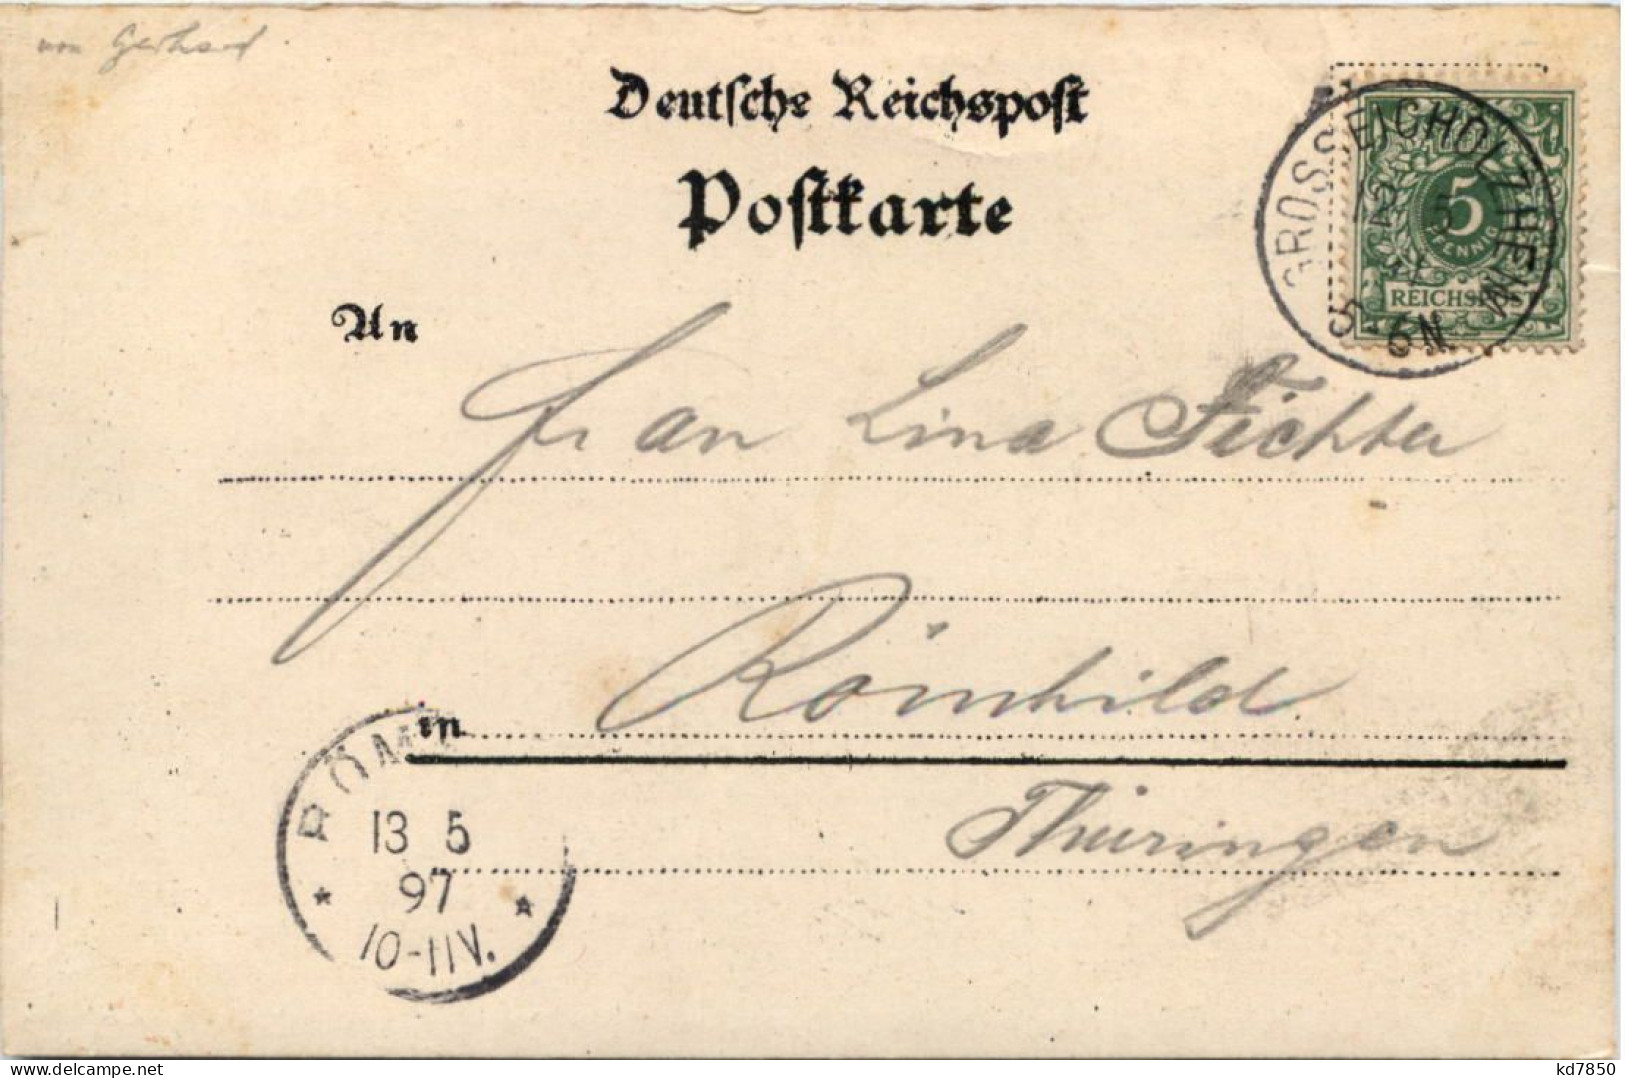 von Gerhard
Deutsche Reichspost
Postkarte
GROSSEICHOLZHEIM
12 5
97
5-6N
5
PFENNIG
REICHSPOST
An
Frau Lina Fichter
in Römhild
Thüringen
RÖM
13 5
97
10-11V.
https://www.delcampe.net
kd7850